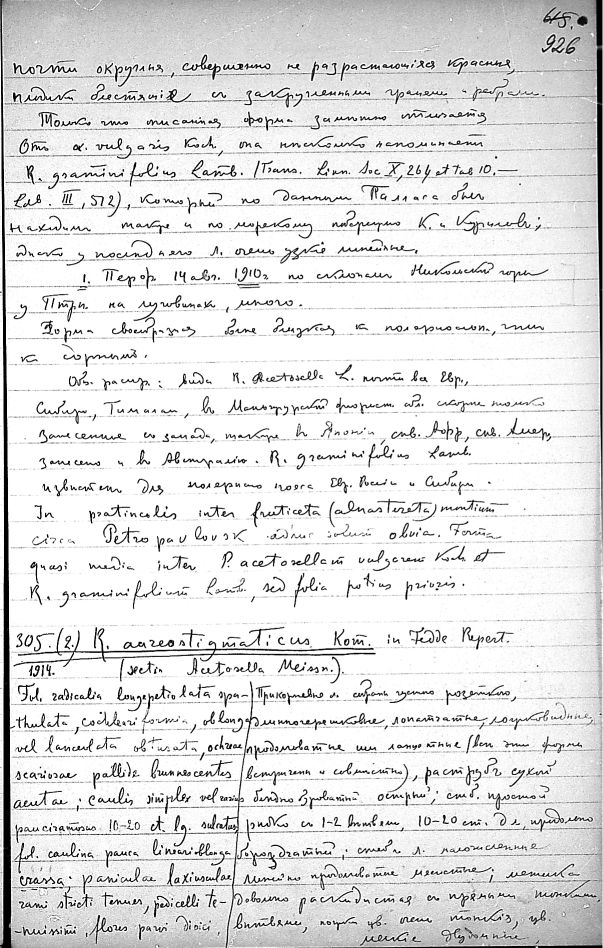 615.
926
почти округлыя, совершенно не разрастающіяся красныя,
плодики блестящіе съ закругленными гранями и ребрами.
Только что описанная форма замѣтно отличается
Отъ α. vulgaris Koch, она нѣсколько напоминаетъ
R. graminifolius Lamb. (Trans. Linn. Soc X, 264 et tab 10. —
Ldb. III, 512), который по даннымъ Палласа былъ
находимъ также и по морскому побережью К. и Куриловъ;
однако у послѣдняго л. очень узкіе линейные.
1. Перор. 14 авг. 1910 г по склонамъ Никольской горы
у Птрп. на луговинахъ, много.
Форма своеобразная болѣе близкая къ
къ сорнымъ.
Общ. распр.: вида R. Acetosella L. почти вся Евр.,
Сибирь, въ Маньчжурской флорист. обл. скорѣе только
занесенное съ запада, также въ Японіи, сѣв. Афр., сѣв. Амер,
занесено и въ Австралію. R. graminifolius Lamb.
извѣстенъ для полярнаго пояса Евр. Россіи и Сибири.
In pratinculis inter fruticeta (alnastereta) montium
circa Petropavlovsk adhuc solum obvia. Forma
quasi media inter P. acetosellam vulgarem Koch et
R. graminifolium Lamb., sed folia potius prioris.
305. (2.) R. aureostigmaticus Kom. in Fedde Repert.
1914. (sectio Acetosella Meissn.).
Fol. radicalia longepetiolata spa-
thulata, cochleariformia, oblonga
vel lanceolata obtusata, ochreae
scariosae pallide brunnescentes
acutae; caulis simplex vel
pauciramosus 10-20 ct. lg. sulcatus
fol. caulina pauca linearioblonga
crassa; paniculae laxiusculae
rami stricti tenues, pedicelli te-
nuissimi flores parvi dioici,
Прикорневые л. собраны густою розеткою,
длинночерешковые, лопатчатые, ложковидные,
продолговатые или ланцетные (всѣ эти формы
встрѣчены и совмѣстно), раструбъ сухой
блѣдно буроватый острый; стеб. простой
рѣдко съ 1-2 вѣтвями, 10-20 cm. дл, продольно
бороздчатый; стебл. л.
линейно продолговатые мясистые; метелка
довольно раскидистая съ прямыми тонкими
вѣтвями, ножки цв. очень тонкія, цв.
мелкіе двудомные